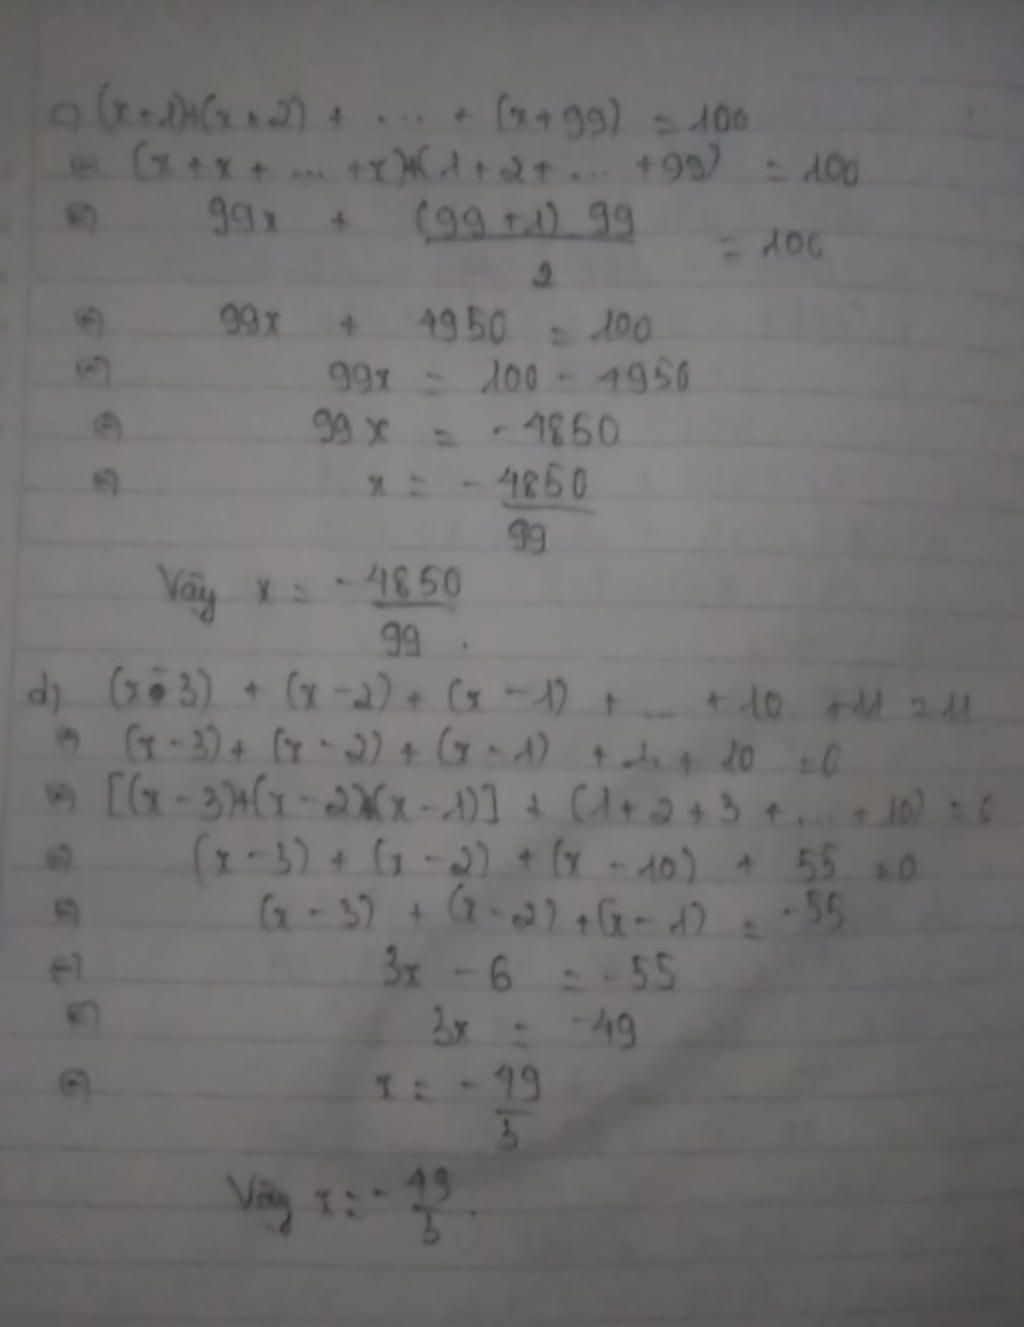 c) (x+1)+(x+2) + ... + (x+99) = 100
⇔ (x+x+ ... +x)+(1+2+ ... +99) = 100
⇔ 99x + (99+1) 99 / 2 = 100
⇔ 99x + 4950 = 100
⇔ 99x = 100 - 4950
⇔ 99x = -4850
⇔ x = -4850/99
Vậy x = -4850/99 .
d) (x-3) + (x-2) + (x-1) + ... + 10 + 11 = 11
⇔ (x-3) + (x-2) + (x-1) + ... + 10 = 0
⇔ [(x-3)+(x-2)+(x-1)] + (1+2+3+ ... +10) = 0
⇔ (x-3) + (x-2) + (x-10) + 55 = 0
⇔ (x-3) + (x-2) + (x-1) = -55
⇔ 3x - 6 = -55
⇔ 3x = -49
⇔ x = -49/3
Vậy x = -49/3 .